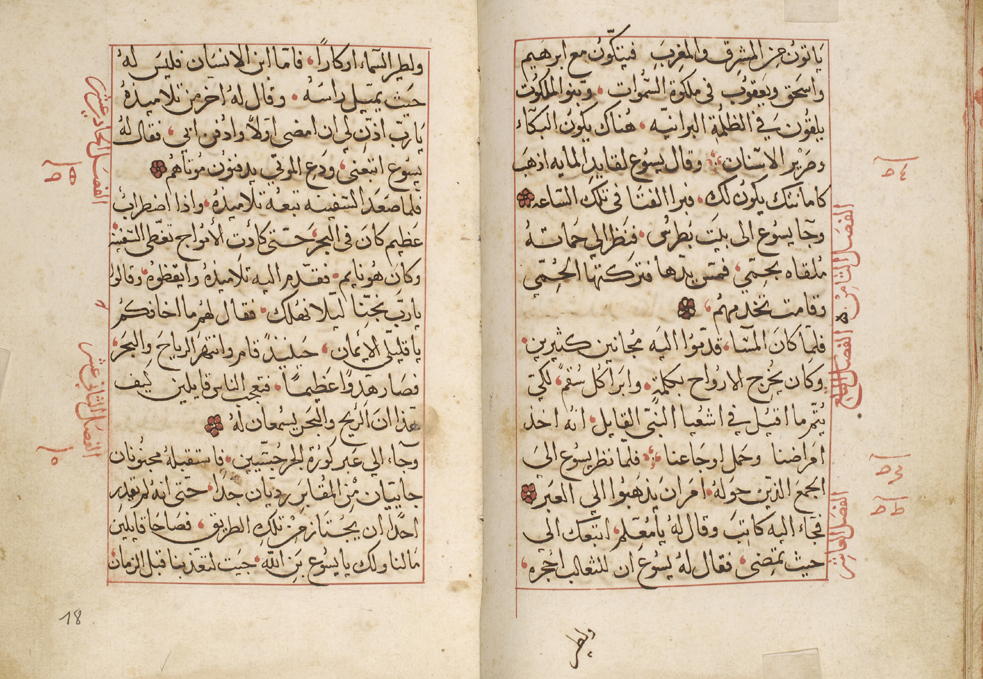 ياتون من المشرق والمغرب فيتكون مع ابرهيم
واسحق ويعقوب في ملكوة السموات وبنو الملكوت
يلقون في الظلمة البرانيه هناك يكون البكاء
وصرير الاسنان وقال يسوع لقايد المايه اذهب
كامانتك يكون لك فبرا الفتا في تلك الساعه
وجا يسوع الى بيت بطرس فنظر الي حماته
ملقاه بحمي فمس يدها فتركتها الحمي
وقامت تخدمهم
فلما كان المسا قدموا اليه مجانين كثيرين
وكان يخرج الارواح بكلمه وابرا كل سقم لكي
يتم ما اقيل في اشعيا النبي القايل انه اخذ
امراضنا وحمل اوجاعنا فلما نظر يسوع الى
الجمع الذين حوله امر ان يذهبوا الي العبر
فجاء اليه كاتب وقال له يا معلم اتبعك الي
حيث تمضي فقال له يسوع ان للثعالب اجحره
ولطير
الفصل الثامن
الفصل التاسع
الفصل العاشر
ولطير السماء اوكارا فاما ابن الانسان فليس له
حيث يميل راسه وقال له اخر من تلاميذه
يارب اذن لي ان امضى اولا وادفن ابي فقال له
يسوع اتبعني ودع الموتى يدفنون موتاهم
فلما صعد السفينه تبعه تلاميذه واذا اضطراب
عظيم كان في البحر حتى كادت الامواج تغطى السفينه
وكان هو نايم فتقدم اليه تلاميذه وايقظوه وقالوا
يارب نجينا ليلا نهلك فقال لهم ما اخافكم
يا قليلي الايمان حينيذ قام وانتهر الرياح والبحر
فصار هدوا عظيما فتعجب الناس قايلين كيف
هذا ان الريح والبحر يسمعان له
وجاء الي عبر كورة الجرجسيين فاستقبله مجنونان
جاييان من المقابر رديان جدا حتى انه لم يقدر
احدا ان يجتاز من تلك الطريق فصاحا قايلين
مالنا ولك يا يسوع بن الله جيت لتعذبنا قبل الزمان
الفصل الحادي عشر
الفصل الثاني عشر
18